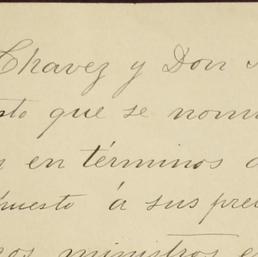 Chavez y Don
que se nom
en términos
puesto á sus pre
ministros